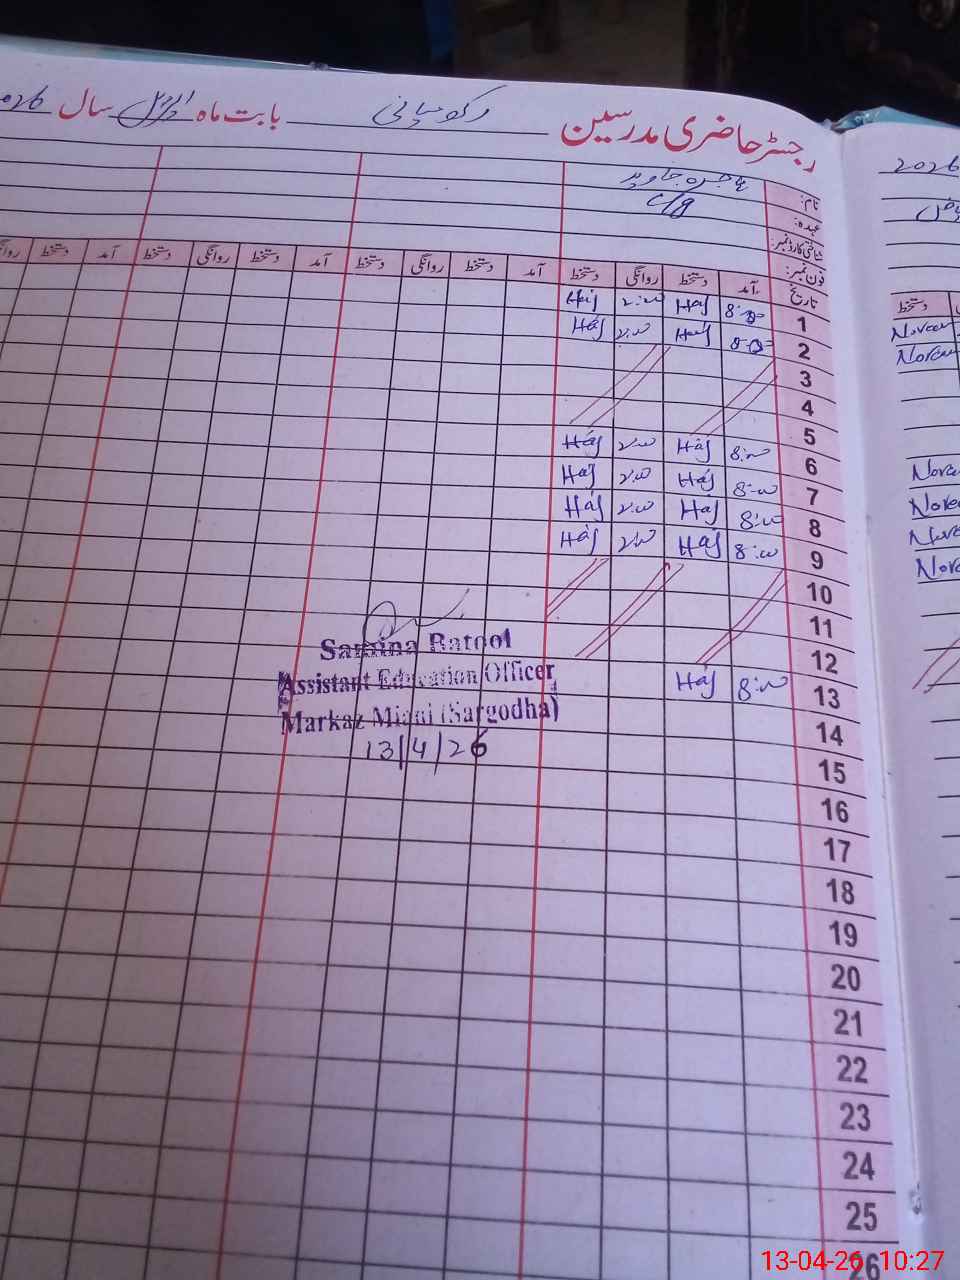 رجسٹر حاضری مدرسین رکھ میانی بابت ماہ اپریل سال 2026
نام: ہاجرہ جاوید
عہدہ:
شناختی کارڈ نمبر:
فون نمبر:
تاریخ آمد دستخط روانگی دستخط آمد دستخط روانگی دستخط آمد دستخط روانگی دستخط آمد دستخط روانگی
1 8:00 Haj 2:00 Haj
2 8:00 Haj 2:00 Haj
3
4
5
6 8:00 Haj 2:00 Haj
7 8:00 Haj 2:00 Haj
8 8:00 Haj 2:00 Haj
9 8:00 Haj 2:00 Haj
10
11
12
13 8:00 Haj
14
15
16
17
18
19
20
21
22
23
24
25
26
Samina Batool
Assistant Education Officer
Markaz Miani (Sargodha)
13/4/26
2026
دستخط
Noreen
Noreen
13-04-26 10:27